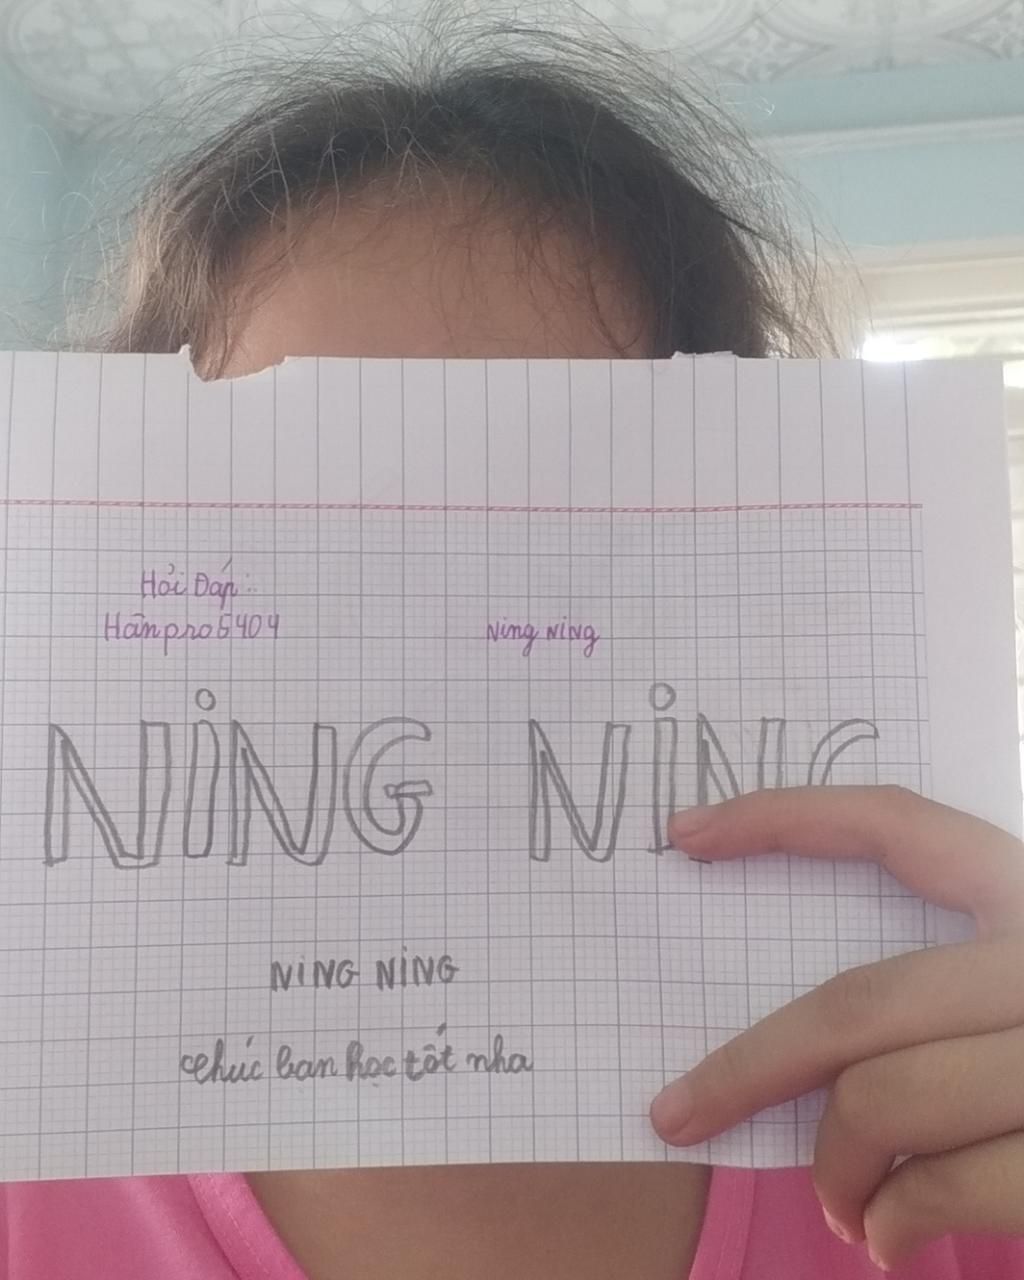 Hỏi Đáp:
Hânpro5404
Ning Ning
NiNG NiNG
NiNG NiNG
chúc bạn học tốt nha